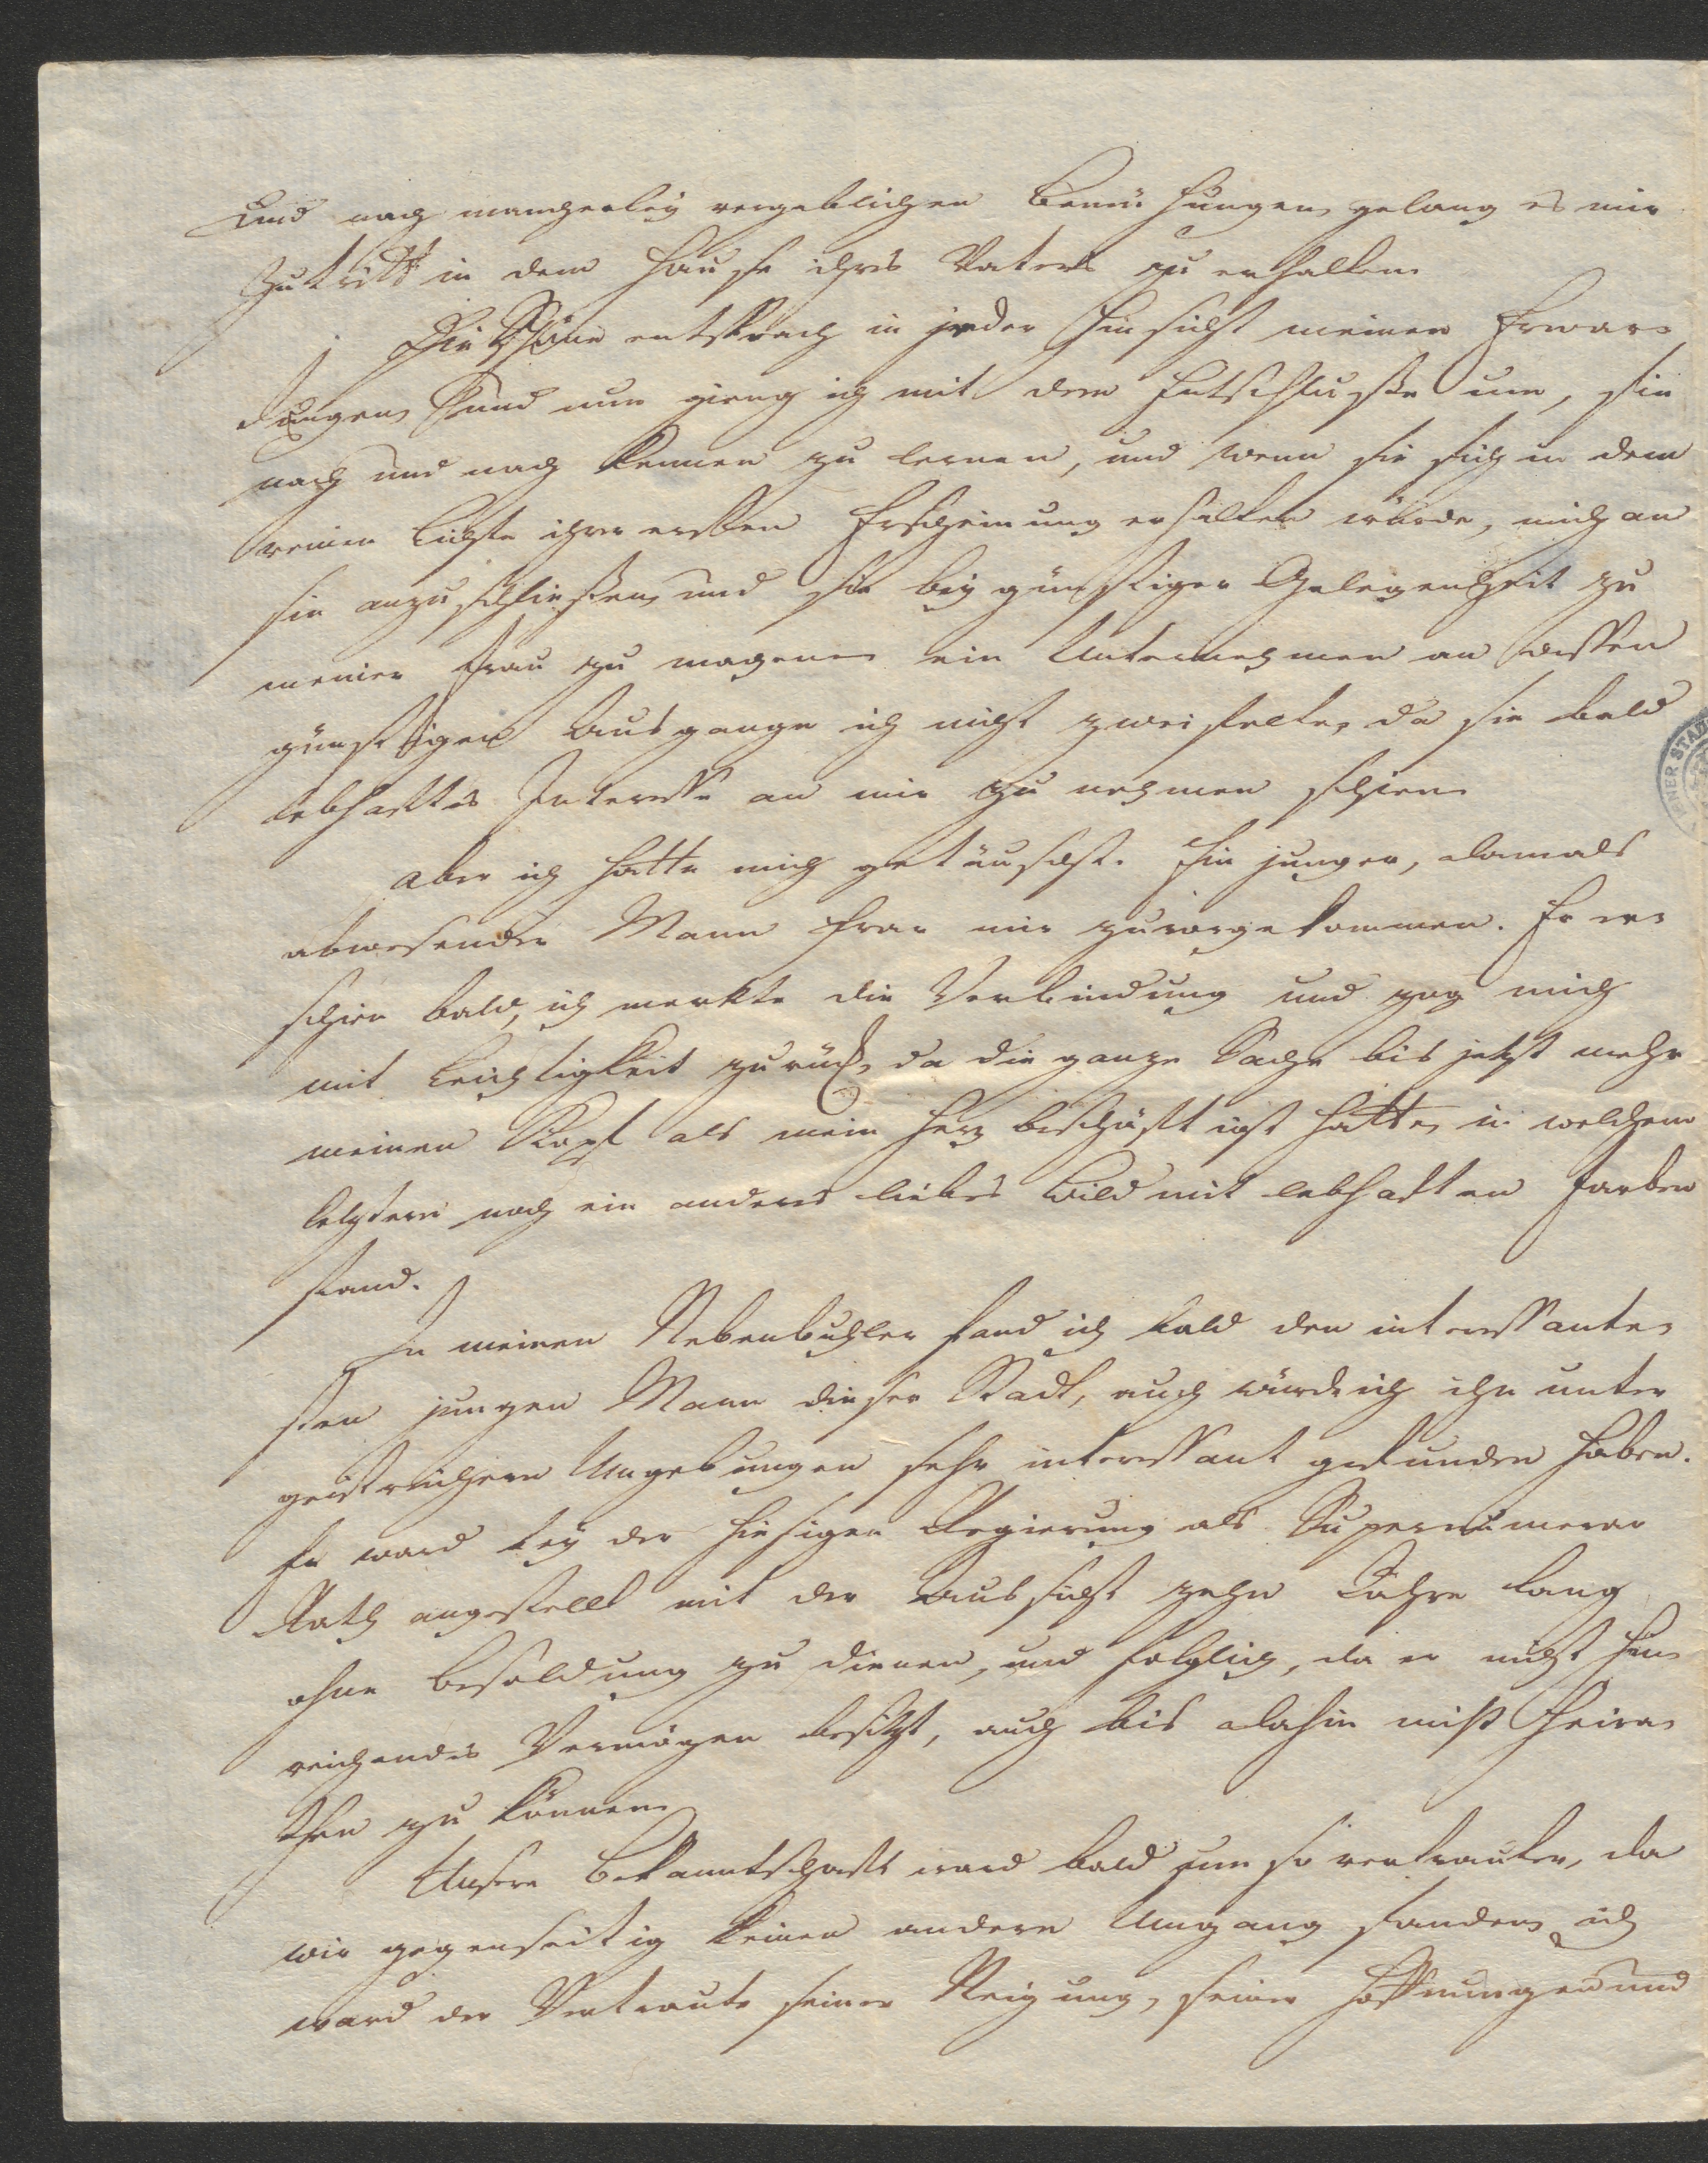 und nach mancherley vergeblichen Bemühungen gelang es mir
Zutritt in dem Hause ihres Vaters zu erhalten
Die Schöne entsprach in jeder Hinsicht meinen Erwar-
tungen und nun gieng ich mit dem Entschlusse um, sie
nach und nach kennen zu lernen, und wenn sie sich in dem
reinen Lichte ihrer ersten Erscheinung erhalten würde, mich an
sie anzuschließen und sie bey günstiger Gelegenheit zu
meiner Frau zu machen ein Unternehmen an dessen
günstigen Ausgange ich nicht zweifelte, da sie bald
lebhaftes Interesse an mir zu nehmen schien
Aber ich hatte mich getäuscht. Ein junger, damals
abwesender Mann war mir zuvorgekommen. Er er-
schien bald, ich merkte die Verbindung und zog mich
mit Leichtigkeit zurück, da die ganze Sache bis jetzt mehr
meinen Kopf als mein Herz beschäftigt hatte, in welchem
letztern noch ein anderes liebes Bild mit lebhaften Farben
stand.
In meinen Nebenbuhler fand ich bald den interessante-
sten jungen Mann dieser Stadt, auch würde ich ihn unter
geistreichern Umgebungen sehr interessant gefunden haben.
Er ward bey der hiesigen Regierung als Supernumerar
Rath angestellt mit der Aussicht zehn Jahre lang
ohne Besoldung zu dienen, und folglich, da er nicht hin-
reichendes Vermögen besitzt, auch bis dahin nicht heira-
then zu können
Unsere Bekanntschaft ward bald um so vertrauter, da
wir gegenseitig keinen andern Umgang fanden, ich
ward der Vertraute seiner Neigung, seiner Hoffnungen und